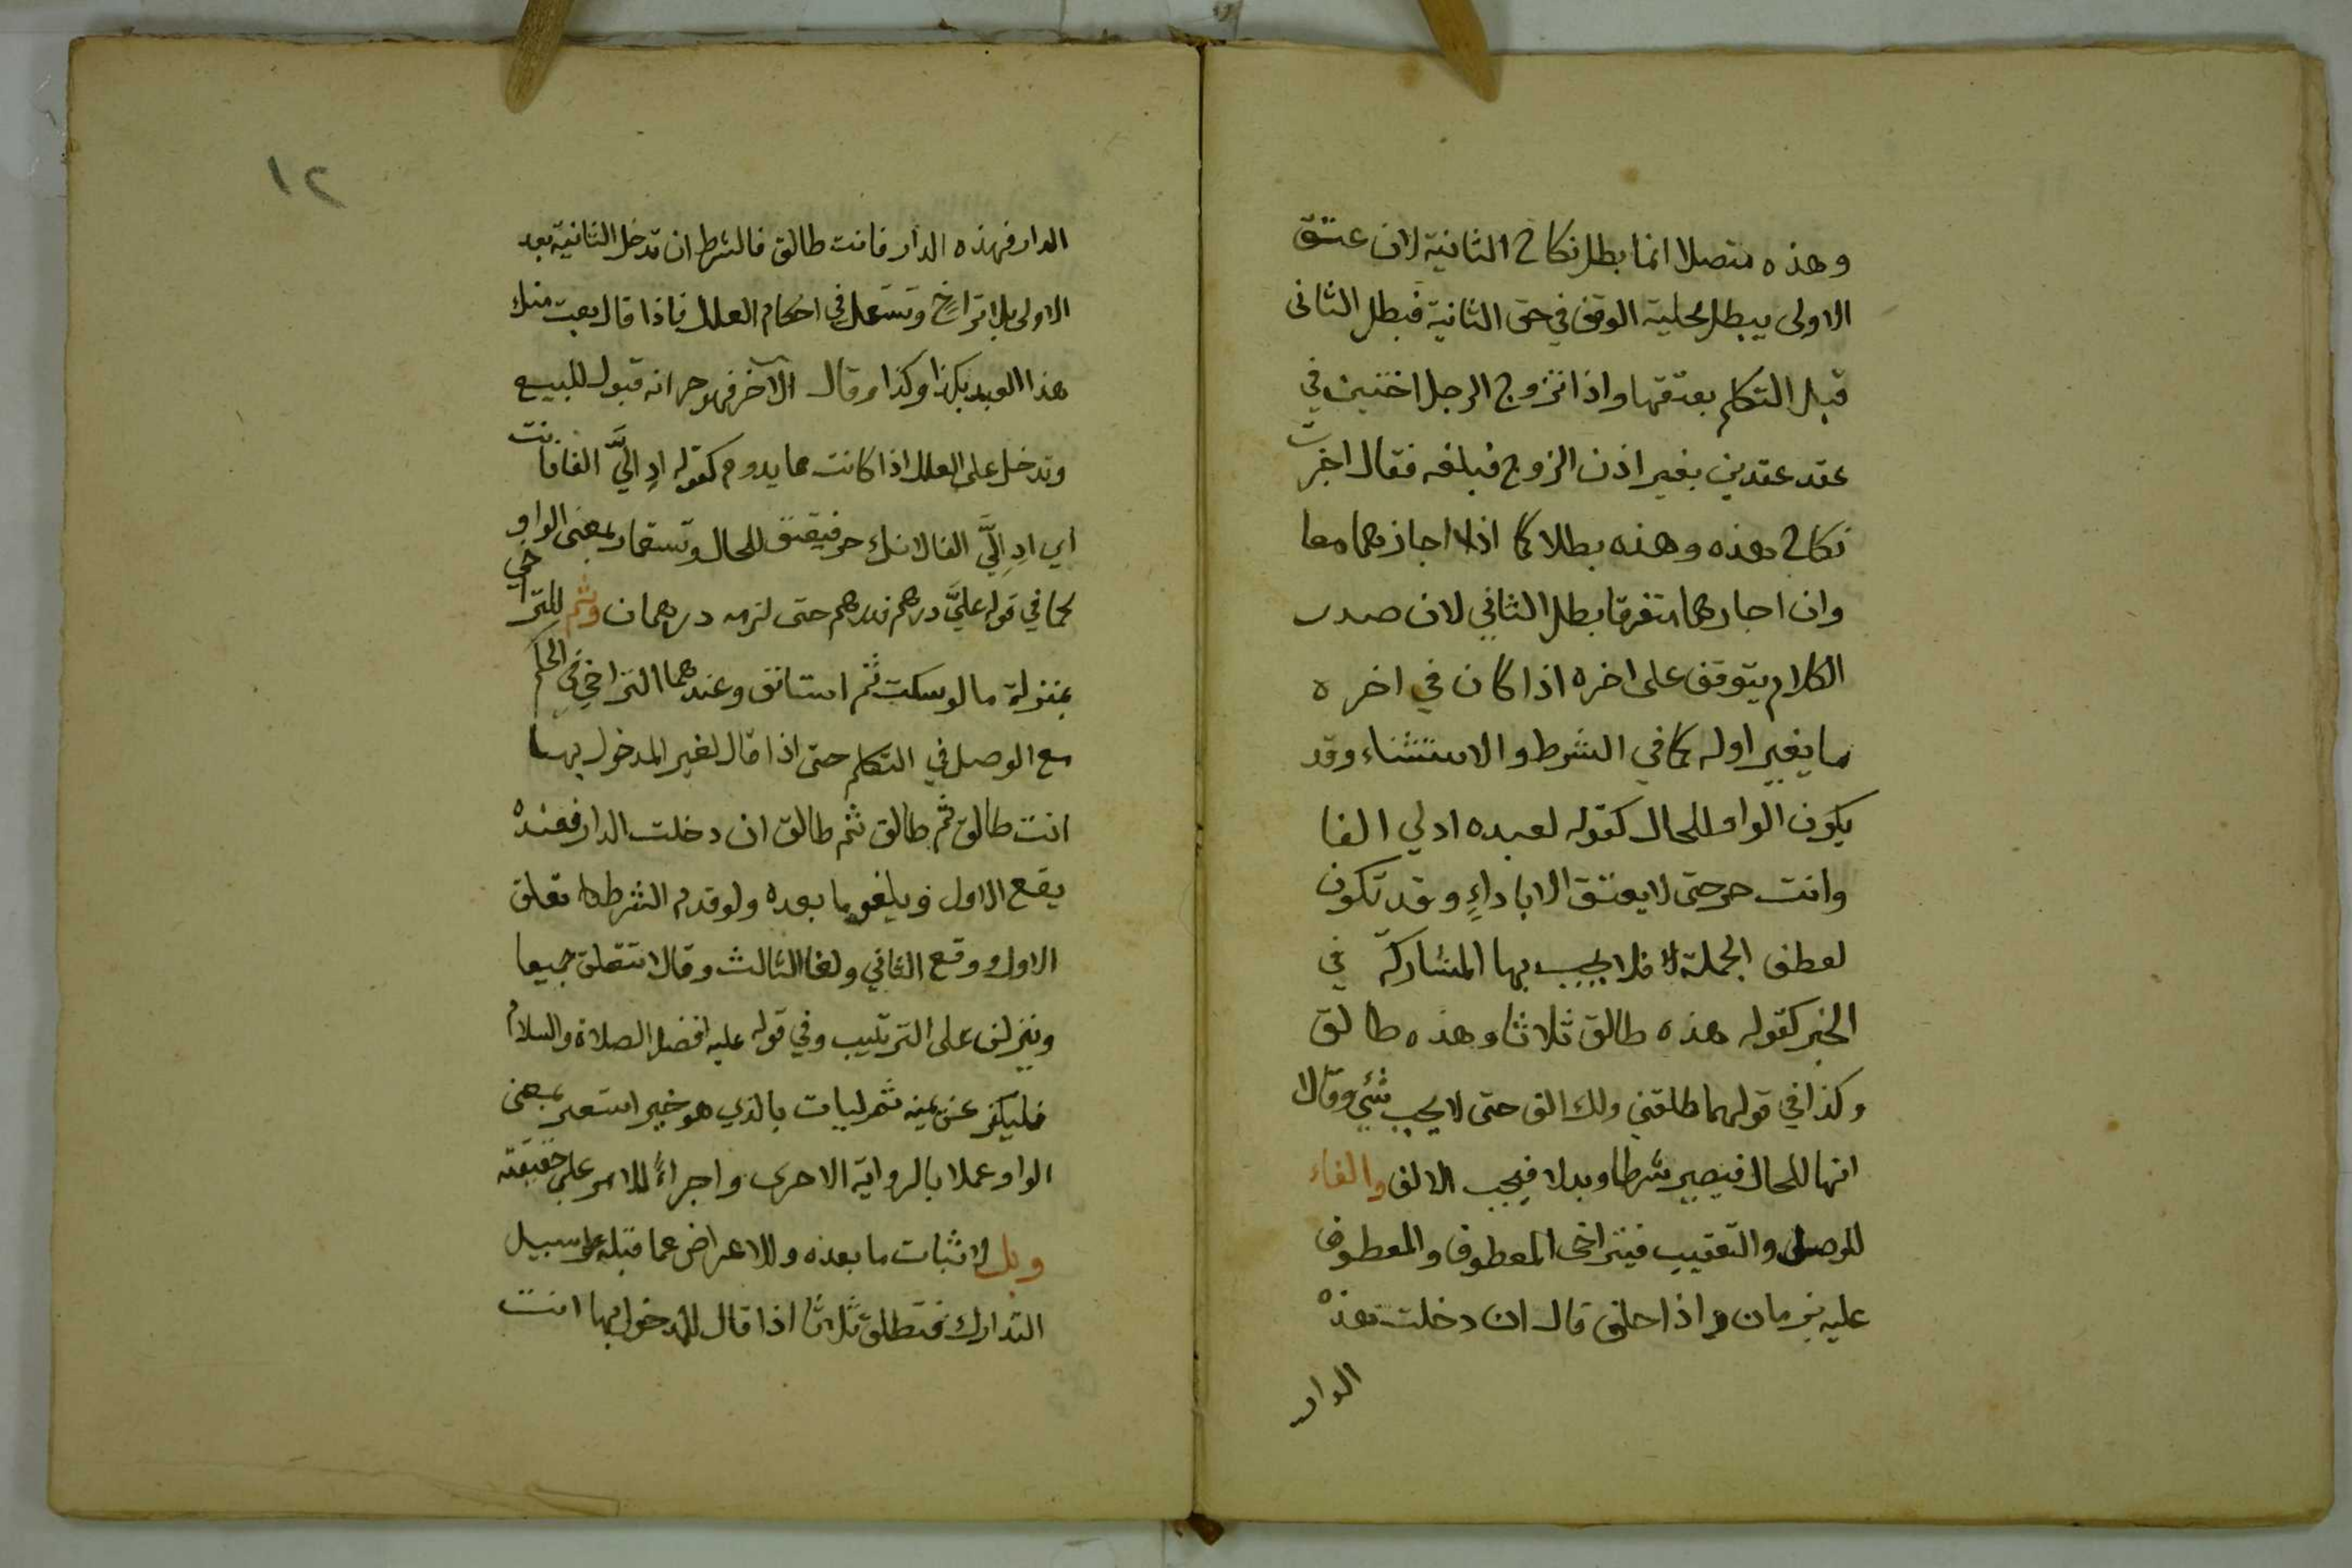 وهذه متصلا انما بطل نكاح الثانية لان عتق
الاولى يبطل محلية الوقف في حق الثانية فبطل الثانى
قبل التكلم بعتقها واذا تزوج الرجل اختين في
عقد عقدين بغير اذن الزوج فبلغه فقال اجزت
نكاح هذه وهذه بطلا كما اذا اجازهما معا
وان اجازهما متفرقا بطل الثاني لان صدر
الكلام يتوقف على اخره اذا كان في اخره
ما يغير اوله كما في الشرط والاستثناء وقد
يكون الواو للحال كقوله لعبده ادلي الفا
وانت حر حتى لا يعتق الا باداءٍ وقد تكون
لعطف الجملة فلا يجب بها المشاركة في
الخبر كقوله هذه طالق ثلاثا وهذه طالق
وكذا في قولهما طلقني ولك الف حتى لا يجب شئي وقالا
انها للحال فيصير شرطا وبدلا فيجب الالف والفاء
للوصل والتعقيب فيتراخى المعطوف والمعطوف
عليه بزمان واذا حلف قال ان دخلت هذه
الدار
١٢
الدار فهذه الدار فانت طالق فالشرط ان تدخل الثانية بعد
الاولى بلا تراخٍ وتستعمل في احكام العلل فاذا قال بعت منك
هذا العبد بكذا وكذا وقال الآخر فهو حر انه قبول للبيع
وتدخل على العلل اذا كانت مما يدوم كقوله ادِ اليَّ الفا فانت
اي ادِ اليَّ الفا لانك حر فيعتق للحال وتستعار بمعنى الواو
كما في قوله عليَّ درهم فدرهم حتى لزمه درهمان وثم للتراخي
بمنزلة ما لو سكت ثم استانف وعندهما التراخي في الحكم
مع الوصل في التكلم حتى اذا قال لغير المدخول بها
انت طالق ثم طالق ثم طالق ان دخلت الدار فعنده
يقع الاول ويلغو ما بعده ولو قدم الشرط تعلق
الاول ووقع الثاني ولغا الثالث وقالا تتعلق جميعا
وينزلن على الترتيب وفي قوله عليه افضل الصلاة والسلام
فليكفر عن يمينه ثم ليات بالذي هو خير استعير بمعنى
الواو عملا بالرواية الاخرى واجراءً للامر على حقيقته
وبل لاثبات ما بعده والاعراض عما قبله على سبيل
التدارك فتطلق ثلاثا اذا قال للمدخول بها انت